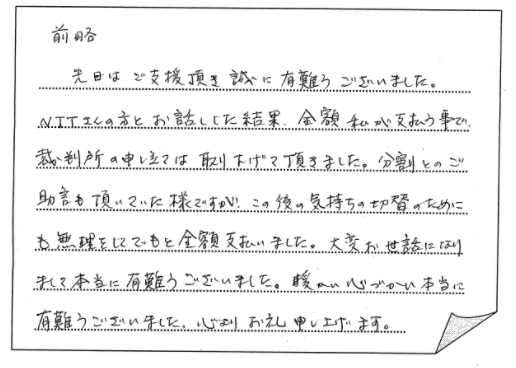 前略
先日はご支援頂き誠に有難うございました。
NTTさんの方とお話しした結果、全額私が支払う事で、
裁判所の申し立ては取り下げて頂きました。分割とのご
助言も頂いていた様ですが、この後の気持ちの切替のために
も無理をしてでもと全額支払いました。大変お世話になり
まして本当に有難うございました。暖かい心づかい本当に
有難うございました、心よりお礼申し上げます。